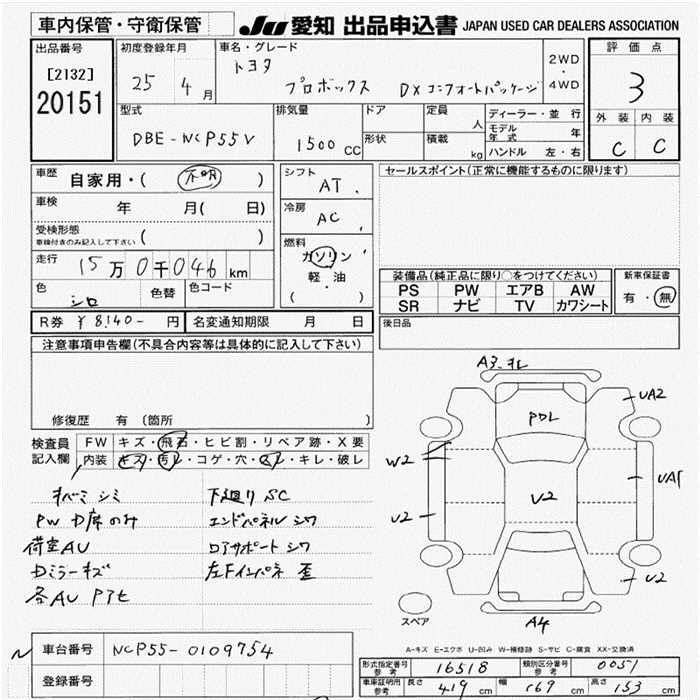 車内保管・守衛保管
JU 愛知 出品申込書 JAPAN USED CAR DEALERS ASSOCIATION
出品番号
[2132]
20151
初度登録年月
25 年 4 月
車名・グレード
トヨタ
プロボックス DXコンフォートパッケージ
2WD
・
4WD
評価点
3
外装 内装
C C
型式
DBE-NCP55V
排気量
1500 CC
ドア
形状
定員 人
積載 kg
ディーラー・並行
モデル年式 年
ハンドル 左・右
車歴 自家用・( 不明 )
車検 年 月( 日)
受検形態
車検付きのみ記入して下さい ( )
走行 15万0千046 km
色 シロ
色替
色コード
シフト
AT
冷房
AC
燃料
ガソリン
軽・油
( )
セールスポイント(正常に機能するものに限ります)
装備品(純正品に限り○をつけてください)
PS PW エアB AW
SR ナビ TV カワシート
新車保証書
有・無
後日品
R券 ¥8140- 円
名変通知期限 月 日
注意事項申告欄(不具合内容等は具体的に記入して下さい)
修復歴 有 (箇所 )
検査員記入欄
FW キズ・飛石・ヒビ割・リペア跡・X要
内装 キズ・汚レ・コゲ・穴・スレ・キレ・破レ
すべミ シミ
PW D席のみ
荷室AU
Dミラーキズ
各AU Pアヒ
下廻り SC
エンドパネル シワ
ロアサポート シワ
左Fインパネ 歪
A3
PDL
UA2
W2
V2
UA1
U2
U2
A4
スペア
A-キズ E-エクボ U-凹み W-補修跡 S-サビ C-腐食 XX-交換済
車台番号 NCP55-0109754
登録番号
形式指定番号 参考 16518
類別区分番号 参考 0051
車庫証明用 参考 長さ 419 cm 幅 169 cm 高さ 153 cm